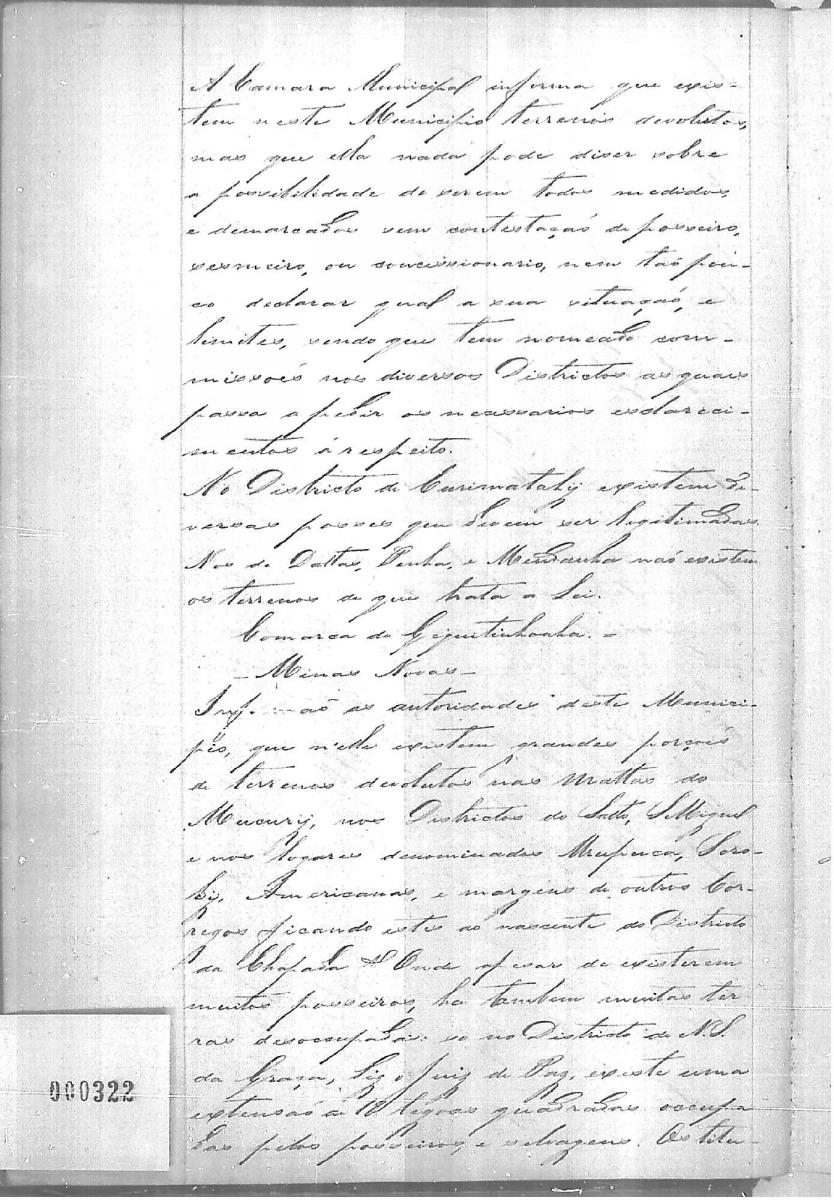 A Camara Municipal informa que exis-
tem neste Municipio terrenos devolutos,
mas que ella nada pode diser sobre
a possibilidade de serem todos medidos,
e demarcados sem contestação de posseiro,
sesmeiro, ou concessionario, nem tão pou-
co declarar qual a sua situação, e
limites, sendo que tem nomeado com-
missões nos diversos Districtos as quais
passa a pedir os necessarios esclareci-
mentos á respeito.
No Districto de Curimatahy existem di-
versas posses que devem ser legitimadas.
Nos de Dattas, Penha, e Mendanha não existem
os terrenos de que trata a Lei.
Comarca do Gequitinhonha. -
- Minas Novas -
as autoridades deste Munici-
pio, que n'elle existem grandes porções
de terrenos devolutos nas Mattas do
Mucury, nos Districtos do Salto, S. Miguel
e nos logares denominados Urupuca, Soro-
by, Americanas, e margens de outros Cor-
regos ficando estes ao nascente do Districto
da Chapada & Onde apesar de existerem
muitos posseiros, ha tambem muitas ter
ras desoccupadas: so no Districto de N. S.
da Graça, diz o Juiz de Paz, existe uma
extensão de 10 legoas quadradas occupa
das pelos posseiros, e selvagens. Os titu-
000322